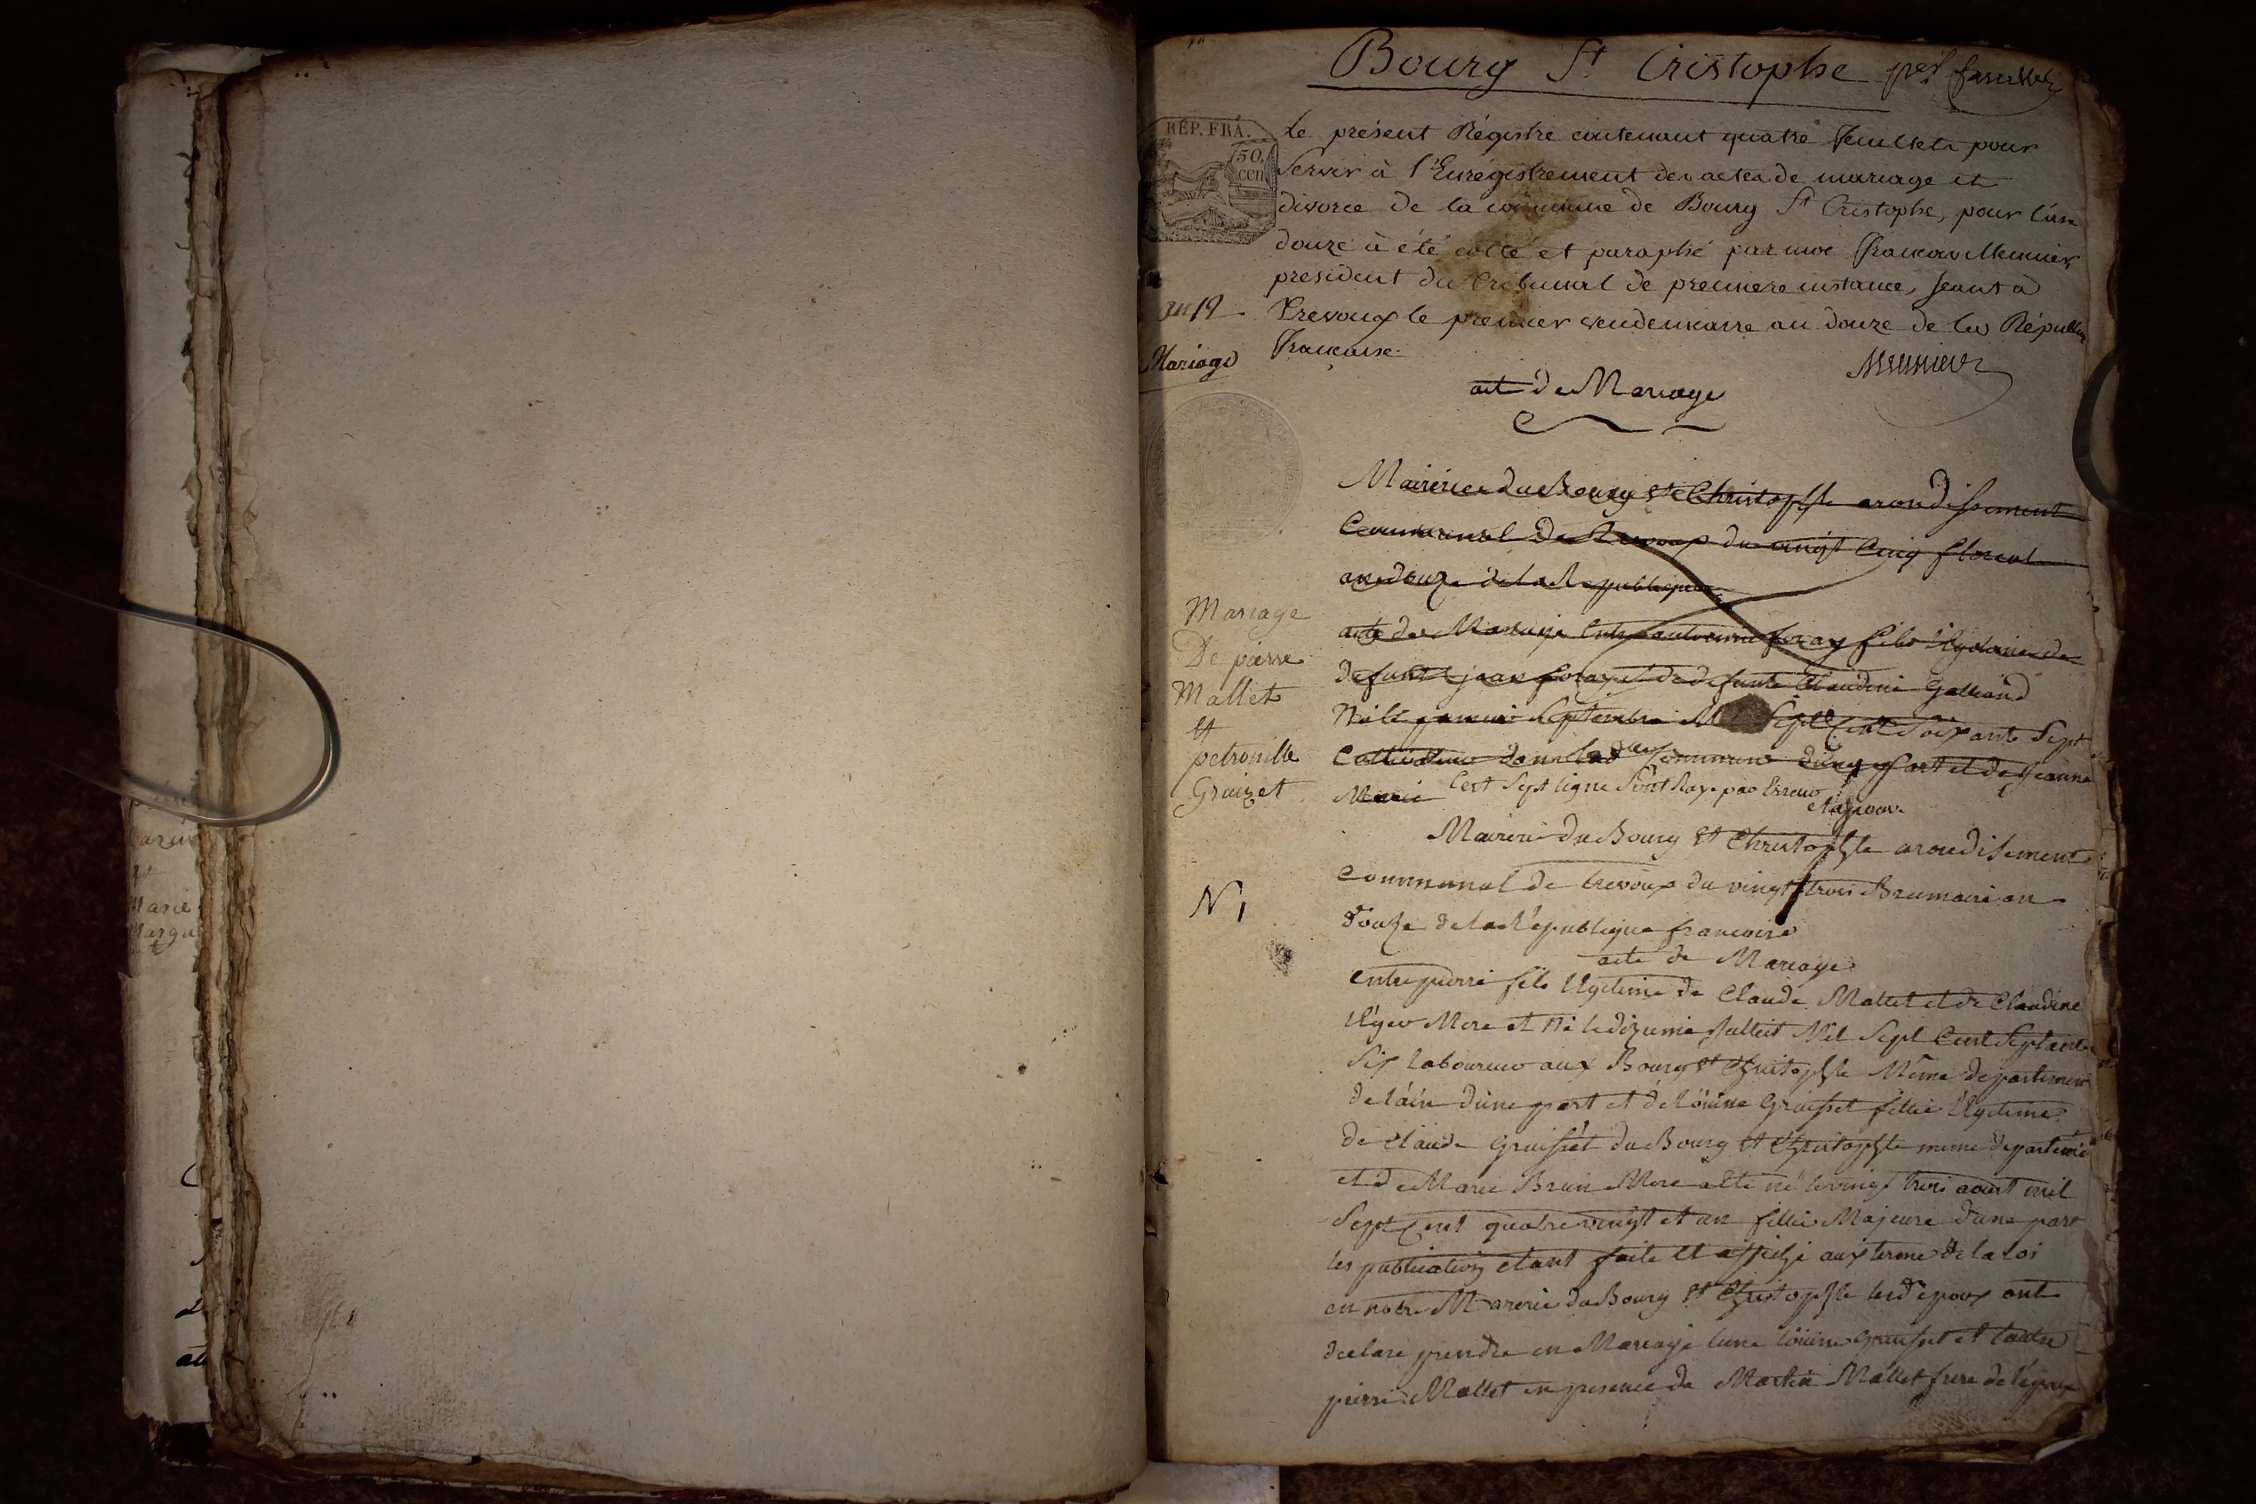 Bourg St Cristophe per feuillet
REP. FRA.
50.
cen
Le présent Régistre contenant quatre feuillets pour
servir à l'Enrégistrement des actes de mariage et
divorce de la commune de Bourg St Cristophe, pour l'an
douze à été cotté et paraphé par moi françois Meunier
président du tribunal de premiere instance, seant à
Trevoux le premier vendemiaire an douze de la Républ
française.
Meunier
an 12
Mariage
act de Mariage
Mairie du Bourg St Christophle arondissement
Communal de Trevoux du vingt Cinq floreal
an douze de la Republique
acte de Mariage Entre antoinne foray fils légitime de
defunt jean foray et de defunte Claudine Galland
Né le premie Septembre M Sept Cent Soixante Sept
Cultivateur dans lad Commune dune part et de jeanne
Marie Cest Sept ligne Sont Raye par Erreur
Mariage
De pierre
Mallet
et
petronille
Gruizet
Mairie du Bourg St Christophle arondisement
Communal de trevoux du vingt trois Brumaire an
douze de la République francoise
acte de Mariage
N 1
Entre pierre fils légitime de Claude Mallet et de Claudine
Léger Mere et Né le dizieme juillet Mil Sept Cent Septante
Six laboureur aux Bourg St Christophle Même departement
de l'ain d'une part et de Gruisset fille légitime
de Claude Gruisset du Bourg St Christophle meme departement
et de Marie Brun Mere née le vingt trois aoust mil
Sept Cent quatre vingt et un fille Majeure d'une part
les publication etant faite et affiché aux terme de la loi
en notre Mairie du Bourg St Christophle lesd époux ont
declaré prendre en Mariage lune Gruisset et lautre
pierre Mallet en presence de Martin Mallet frere de l'époux